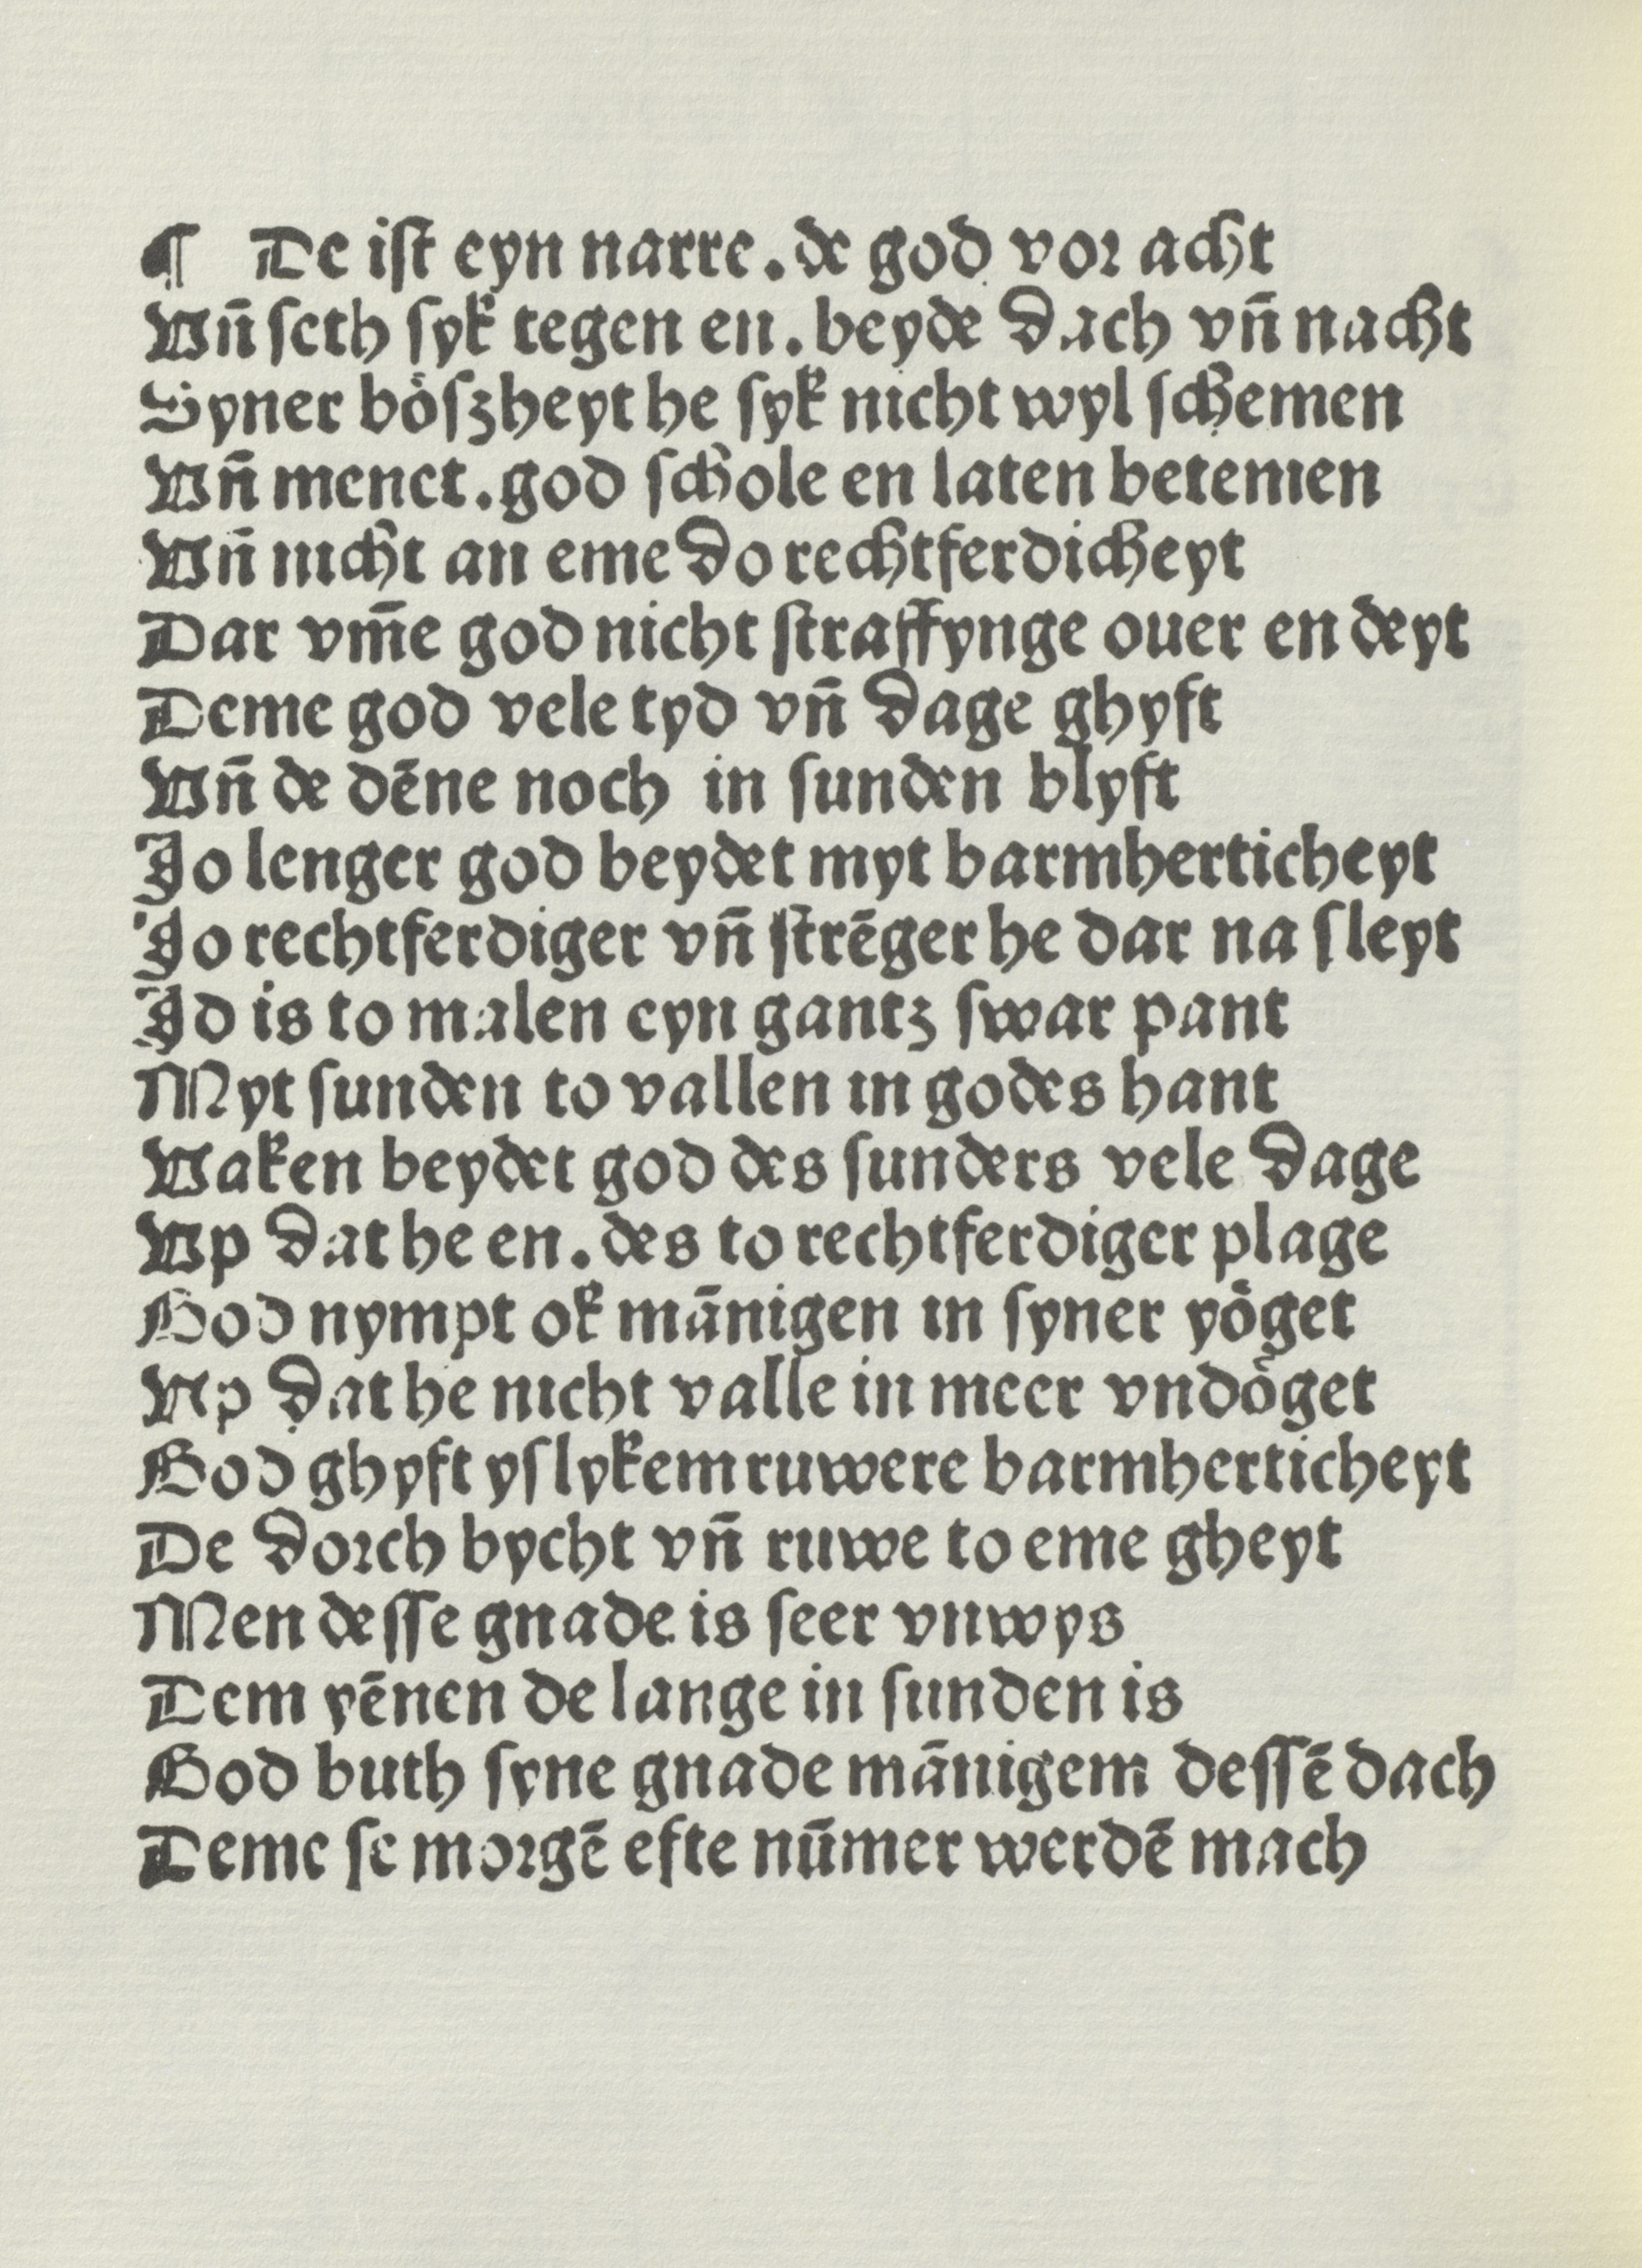 ¶ De iſt eyn narre. de god vor acht
Vn̄ ſeth ſyk tegen en. beyde dach vn̄ nacht
Syner bőſzheyt he ſyk nicht wyl ſchemen
Vn̄ menet. god ſchole en laten betemen
Vn̄ nicht an eme do rechtferdicheyt
Dar vm̄e god nicht ſtraffynge ouer en deyt
Deme god vele tyd vn̄ dage ghyft
Vn̄ de dēne noch in ſunden blyft
Jo lenger god beydet myt barmherticheyt
Jo rechtferdiger vn̄ ſtrēger he dar na ſleyt
Jd is to malen eyn gantz ſwar pant
Myt ſunden to vallen in godes hant
Vaken beydet god des ſunders vele dage
Vp dat he en. des to rechtferdiger plage
God nympt ok mānigen in ſyner yoͤget
Vp dat he nicht valle in meer vndoͤget
God ghyft yſlykem ruwere barmherticheyt
De dorch bycht vn̄ ruwe to eme gheyt
Men deſſe gnade is ſeer vnwys
Dem yēnen de lange in ſunden is
God buth ſyne gnade mānigem deſſē dach
Deme ſe morgē efte nūmer werdē mach